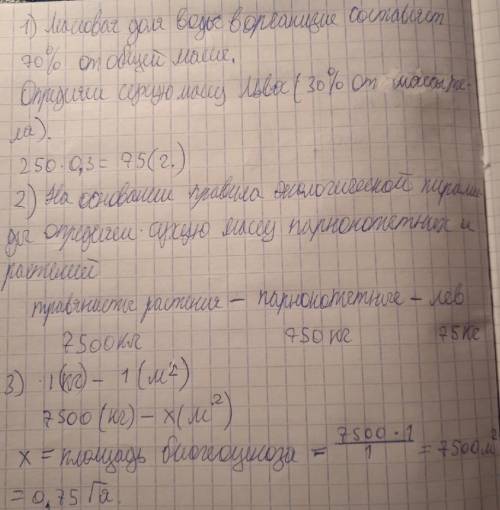 1) Массовая доля воды в организме составляет
70% от общей массы.
Определим сухую массу льва (30% от массы те-
ла).
250·0,3 = 75 (г.)
2) На основании правила экологической пирами-
ды определим сухую массу парнокопытных и
растений
травянистые растения – парнокопытные – лев
7500 кг 750 кг 75 кг
3) 1 (кг) – 1 (м²)
7500 (кг) – x (м²)
x = площадь биогеоценоза = 7500·1 / 1 = 7500 м²
= 0,75 га.